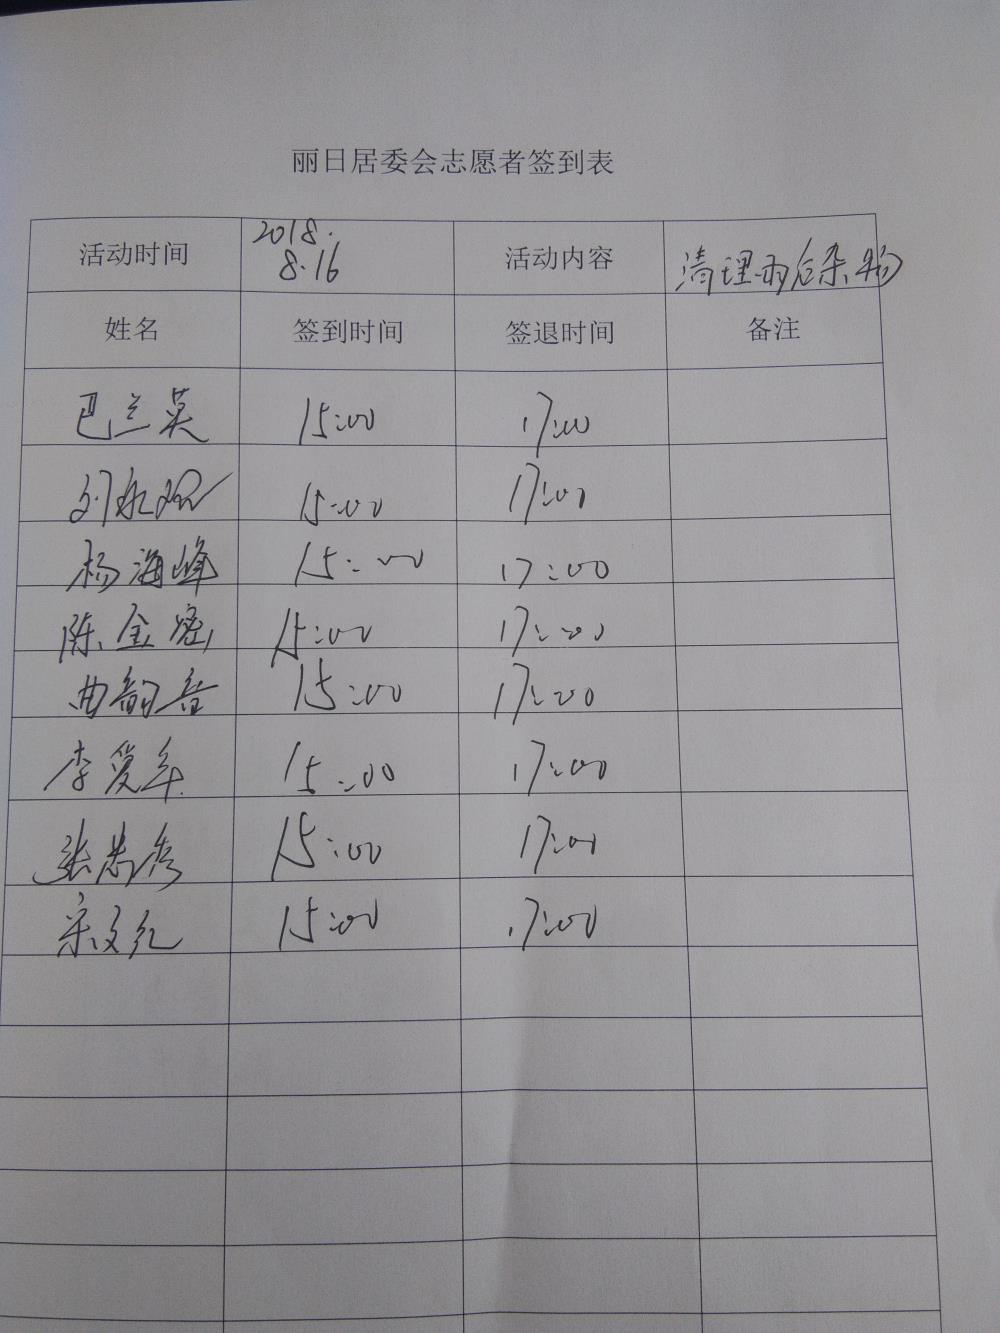 丽日居委会志愿者签到表
活动时间 2018. 8.16 活动内容 清理雨后杂物
姓名 签到时间 签退时间 备注
巴兰英 15:00 17:00
刘永 15:00 17:00
杨海峰 15:00 17:00
陈金 15:00 17:00
曲韵音 15:00 17:00
李爱年 15:00 17:00
张忠秀 15:00 17:00
宋文红 15:00 17:00